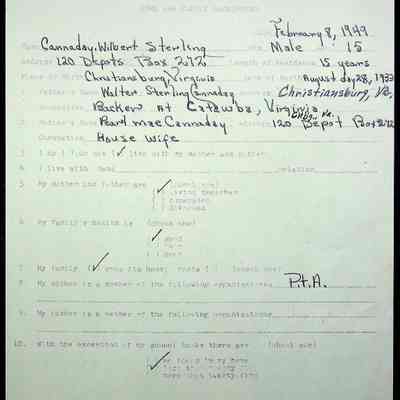 HOME AND FAMILY BACKGROUND
February 8, 1949
Cannaday, Wilbert Sterling Male 15
Address 120 Depots Box 272 Length of Residence 15 years
Place of Birth Christiansburg, Virginia Date of Birth August day 28, 1933
Father's Name Walter Sterling Cannaday Address Christiansburg, Va.
Occupation Backer at Catawba, Virginia
Mother's Name Pearl mae Cannaday address 120 Depot Box 272 Chbg. Va.
Occupation House Wife
3. I do ( ) I do not (✓) live with my mother and father.
4. I live with Name relation
5. My mother and father are ✓ (check one)
( ) living together
( ) separated
( ) divorced
6. My family's health is (check one)
✓ good
( ) fair
( ) poor
7. My family (✓) owns its home; rents ( ) (check one)
8. My mother is a member of the following organizations P.t.A.
9. My father is a member of the following organizations
10. With the exception of my school books there are (check one)
no books in my home
less than twenty-five
more than twenty-five